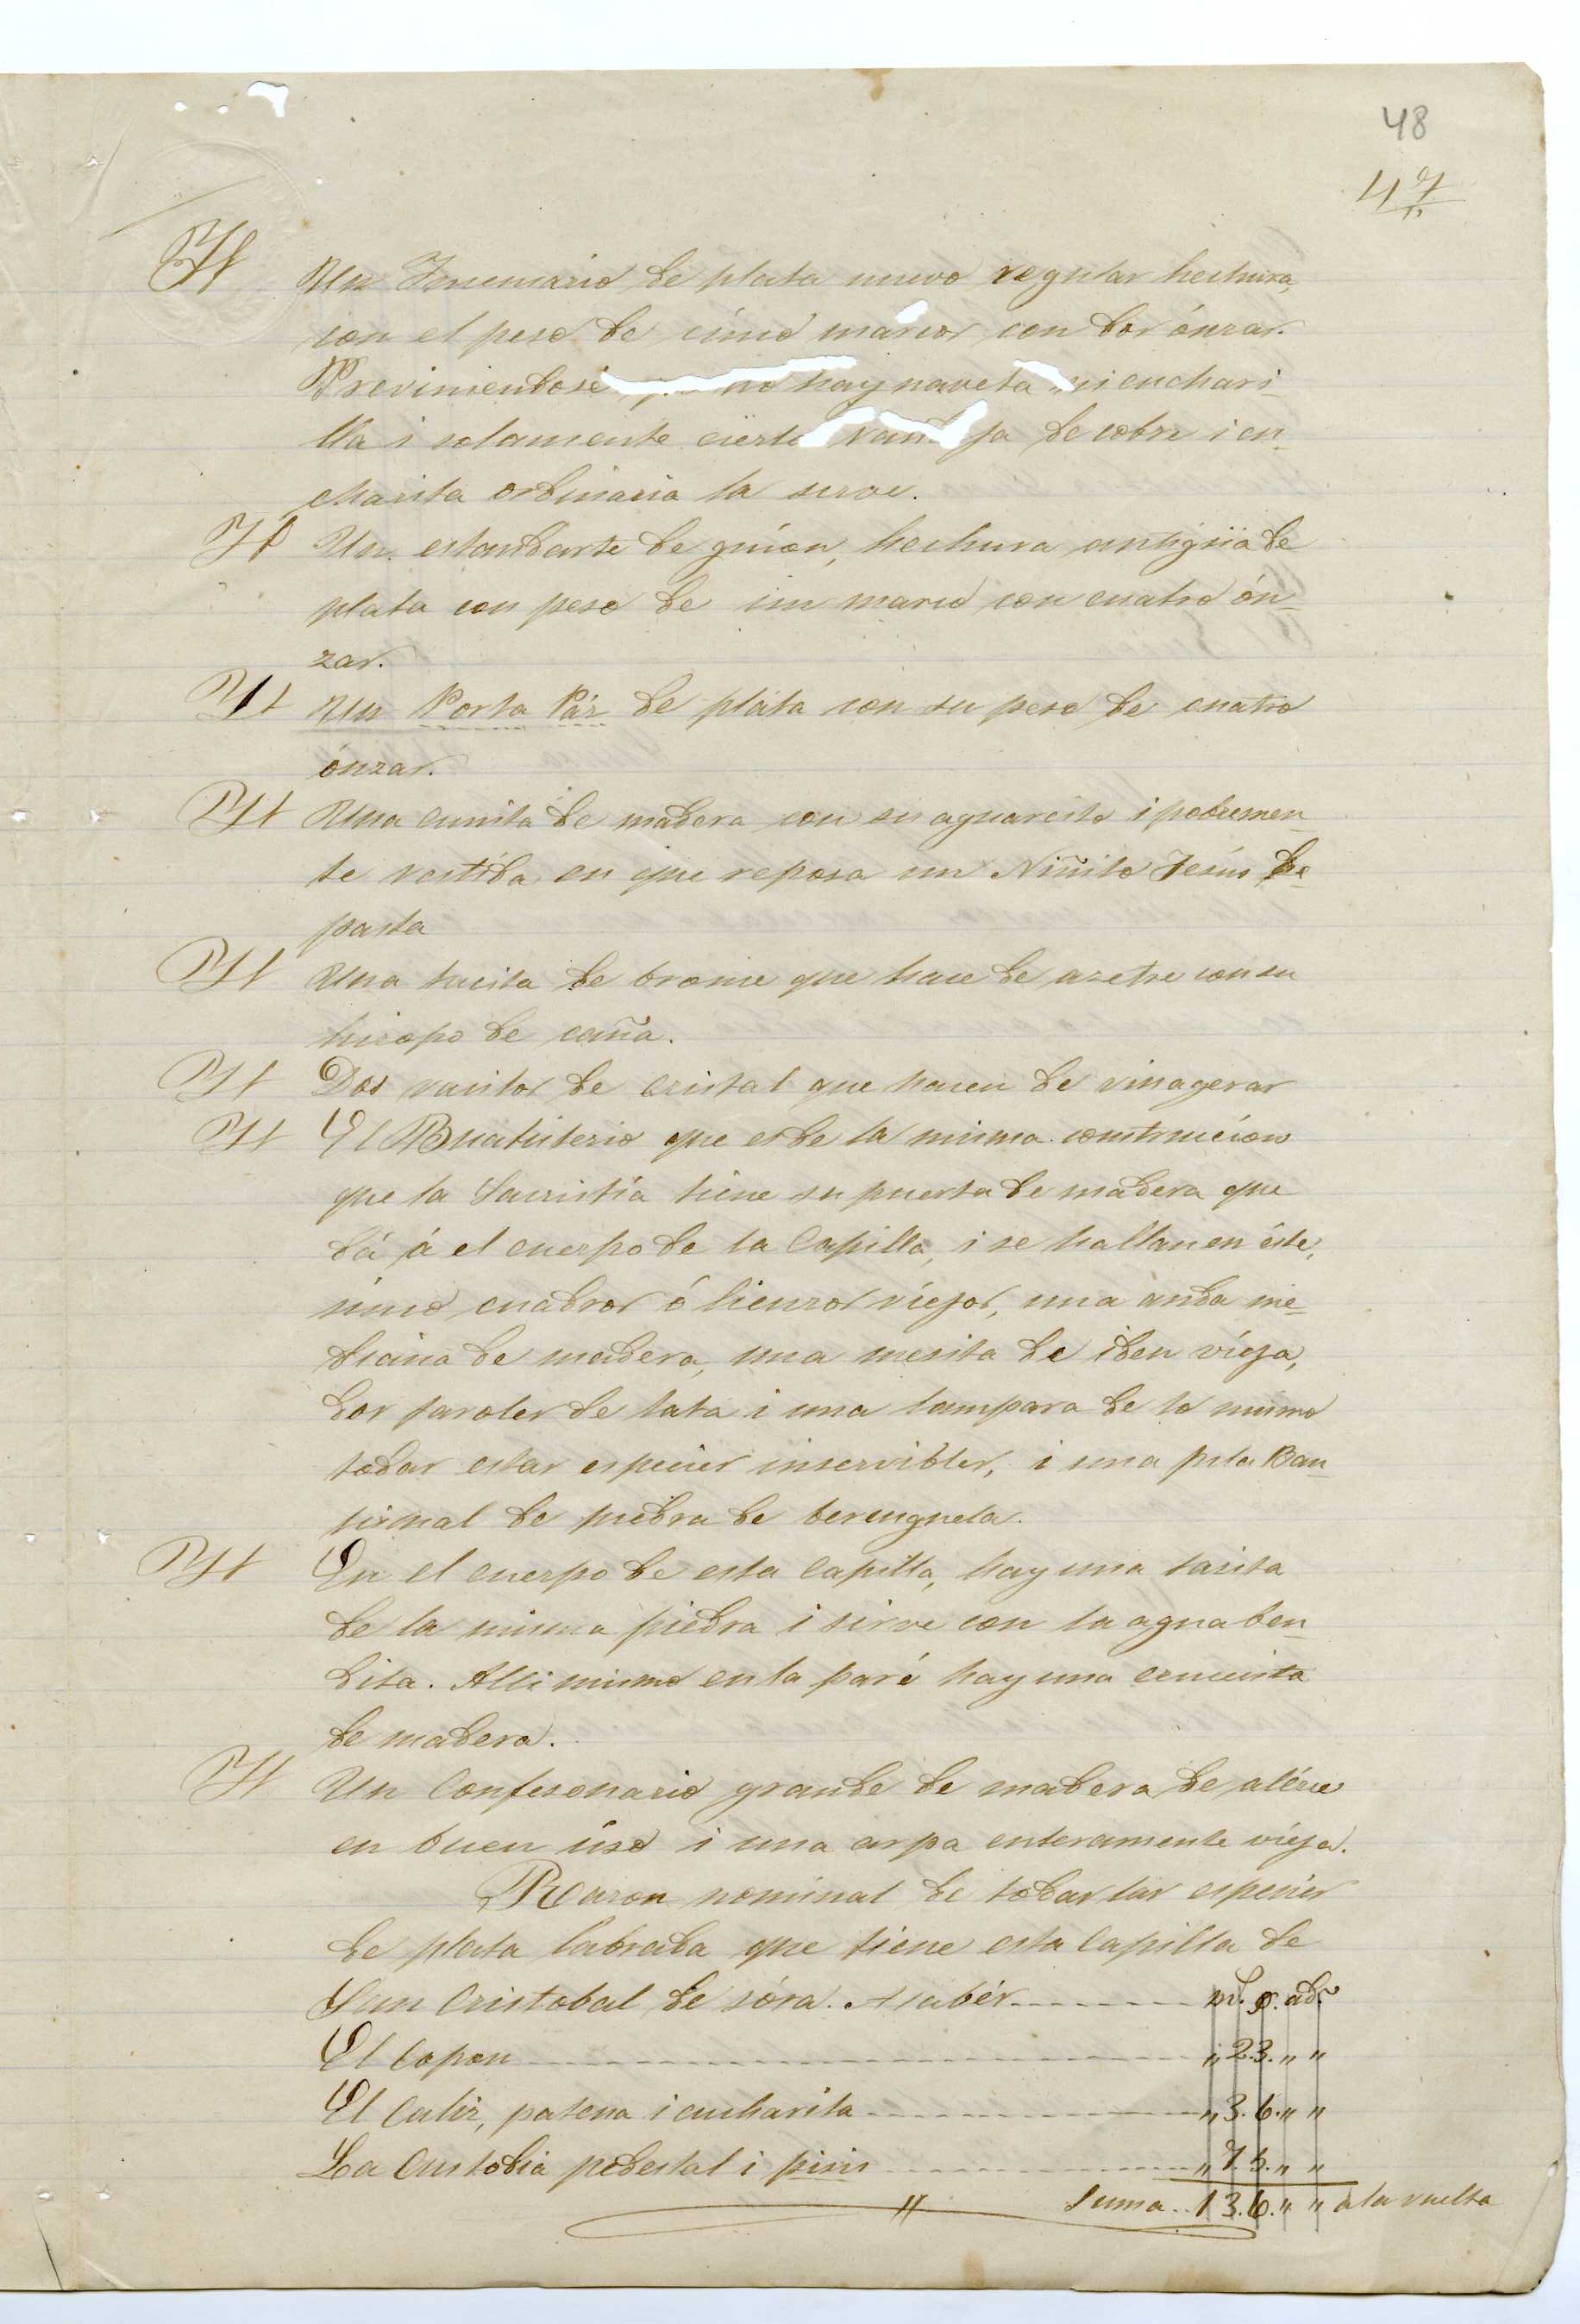 48
47
Yt Un Yncensario de plata nuevo regular hechura,
con el peso de cinco marcos con dos ónzas.
Previniendose no hay naveta ni cuchari-
lla i solamente cierta de cobre i cu-
charita ordinaria la serve.
Yt Un estandarte de guíon, hechura antigüa de
plata con peso de un marco con cuatro ón-
zas.
Yt Un Porta Páz de pláta con su peso de cuatro
ónzas.
Yt Una cunita de madera con su aguarcito i pobremen-
te vestída en que reposa un Niñito Jesús de
pasta
Yt Una tacita de bronce que hace de azetre con su
hizopo de caña.
Yt Dos vasitos de cristal que hacen de vinageras
Yt El Buatisterio que es de la misma construcíon
que la Sacristía tiene su puerta de madera que
dá á el cuerpo de la Capilla, i se hallan en éste,
cinco cuadros ó lienzos víejos, una anda me-
diana de madera, una mesita de iden víeja,
dos faroles de lata i una lampara de lo mismo
todas estas especies inservibles, i una pila Bau-
tismal de piedra de berenguela.
Yt En el cuerpo de esta Capilla, hay una tasita
de la misma piedra i sirve con la agua ben-
dita. Alli mismo en la paré hay una crucesita
de madera.
Yt Un Confesonario grande de madera de alérce
en buen úso i una arpa enteramente víeja.
Razon nominal de todas las especies
de plata labrada que tiene esta Capilla de
San Cristobal de sóra. A sabér. ms. o. ads.
El Copon " 2.3. " "
El Caliz, patena i cucharita " 3. 6. " "
La Custodia pedestal i pixis " 7. 5. " "
Suma.. 1 3. 6. " " a la vuelta